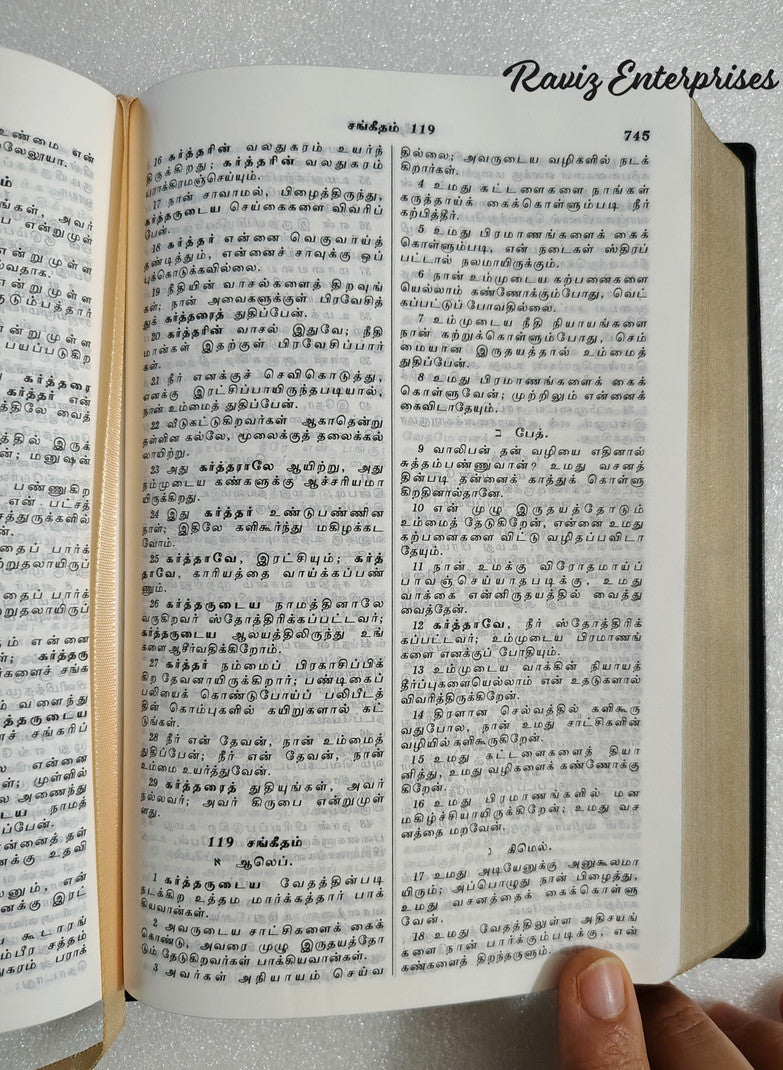 Raviz Enterprises
சங்கீதம் 119
745
உண்மை என்
லேலூயா.
16 கர்த்தரின் வலதுகரம் உயர்ந்
திருக்கிறது; கர்த்தரின் வலதுகரம்
பராக்கிரமஞ்செய்யும்.
17 நான் சாவாமல், பிழைத்திருந்து,
கர்த்தருடைய செய்கைகளை விவரிப்
பேன்.
18 கர்த்தர் என்னை வெகுவாய்த்
தண்டித்தும், என்னைச் சாவுக்கு ஒப்
புக்கொடுக்கவில்லை.
19 நீதியின் வாசல்களைத் திறவுங்
கள்; நான் அவைகளுக்குள் பிரவேசித்
துக் கர்த்தரைத் துதிப்பேன்.
20 கர்த்தரின் வாசல் இதுவே; நீதி
மான்கள் இதற்குள் பிரவேசிப்பார்
கள்.
21 நீர் எனக்குச் செவிகொடுத்து,
எனக்கு இரட்சிப்பாயிருந்தபடியால்,
நான் உம்மைத் துதிப்பேன்.
22 வீடுகட்டுகிறவர்கள் ஆகாதென்று
தள்ளின கல்லே, மூலைக்குத் தலைக்கல்
லாயிற்று.
23 அது கர்த்தராலே ஆயிற்று, அது
நம்முடைய கண்களுக்கு ஆச்சரியமா
யிருக்கிறது.
24 இது கர்த்தர் உண்டுபண்ணின
நாள்; இதிலே களிகூர்ந்து மகிழக்கட
வோம்.
25 கர்த்தாவே, இரட்சியும்; கர்த்
தாவே, காரியத்தை வாய்க்கப்பண்
ணும்.
26 கர்த்தருடைய நாமத்தினாலே
வருகிறவர் ஸ்தோத்திரிக்கப்பட்டவர்;
கர்த்தருடைய ஆலயத்திலிருந்து உங்
களை ஆசீர்வதிக்கிறோம்.
27 கர்த்தர் நம்மைப் பிரகாசிப்பிக்
கிற தேவனாயிருக்கிறார்; பண்டிகைப்
பலியைக் கொண்டுபோய்ப் பலிபீடத்
தின் கொம்புகளில் கயிறுகளால் கட்
டுங்கள்.
28 நீர் என் தேவன், நான் உம்மைத்
துதிப்பேன்; நீர் என் தேவன், நான்
உம்மை உயர்த்துவேன்.
29 கர்த்தரைத் துதியுங்கள், அவர்
நல்லவர்; அவர் கிருபை என்றுமுள்
ளது.
119 சங்கீதம்
א ஆலெப்.
1 கர்த்தருடைய வேதத்தின்படி
நடக்கிற உத்தம மார்க்கத்தார் பாக்
கியவான்கள்.
2 அவருடைய சாட்சிகளைக் கைக்
கொண்டு, அவரை முழு இருதயத்தோ
டும் தேடுகிறவர்கள் பாக்கியவான்கள்.
3 அவர்கள் அநியாயம் செய்வ
தில்லை; அவருடைய வழிகளில் நடக்
கிறார்கள்.
4 உமது கட்டளைகளை நாங்கள்
கருத்தாய்க் கைக்கொள்ளும்படி நீர்
கற்பித்தீர்.
5 உமது பிரமாணங்களைக் கைக்
கொள்ளும்படி, என் நடைகள் ஸ்திரப்
பட்டால் நலமாயிருக்கும்.
6 நான் உம்முடைய கற்பனைகளை
யெல்லாம் கண்ணோக்கும்போது, வெட்
கப்பட்டுப்போவதில்லை.
7 உம்முடைய நீதி நியாயங்களை
நான் கற்றுக்கொள்ளும்போது, செம்
மையான இருதயத்தால் உம்மைத்
துதிப்பேன்.
8 உமது பிரமாணங்களைக் கைக்
கொள்ளுவேன்; முற்றிலும் என்னைக்
கைவிடாதேயும்.
ב பேத்.
9 வாலிபன் தன் வழியை எதினால்
சுத்தம்பண்ணுவான்? உமது வசனத்
தின்படி தன்னைக் காத்துக் கொள்ளு
கிறதினால்தானே.
10 என் முழு இருதயத்தோடும்
உம்மைத் தேடுகிறேன், என்னை உமது
கற்பனைகளை விட்டு வழிதப்பவிடா
தேயும்.
11 நான் உமக்கு விரோதமாய்ப்
பாவஞ்செய்யாதபடிக்கு, உமது
வாக்கை என்னிருதயத்தில் வைத்து
வைத்தேன்.
12 கர்த்தாவே, நீர் ஸ்தோத்திரிக்
கப்பட்டவர்; உம்முடைய பிரமாணங்
களை எனக்குப் போதியும்.
13 உம்முடைய வாக்கின் நியாயத்
தீர்ப்புகளையெல்லாம் என் உதடுகளால்
விவரித்திருக்கிறேன்.
14 திரளான செல்வத்தில் களிகூரு
வதுபோல, நான் உமது சாட்சிகளின்
வழியில் களிகூருகிறேன்.
15 உமது கட்டளைகளைத் தியா
னித்து, உமது வழிகளைக் கண்ணோக்கு
கிறேன்.
16 உமது பிரமாணங்களில் மன
மகிழ்ச்சியாயிருக்கிறேன்; உமது வச
னத்தை மறவேன்.
ג கிமெல்.
17 உமது அடியேனுக்கு அனுகூலமா
யிரும்; அப்பொழுது நான் பிழைத்து,
உமது வசனத்தைக் கைக்கொள்ளு
வேன்.
18 உமது வேதத்திலுள்ள அதிசயங்
களை நான் பார்க்கும்படிக்கு, என்
கண்களைத் திறந்தருளும்.